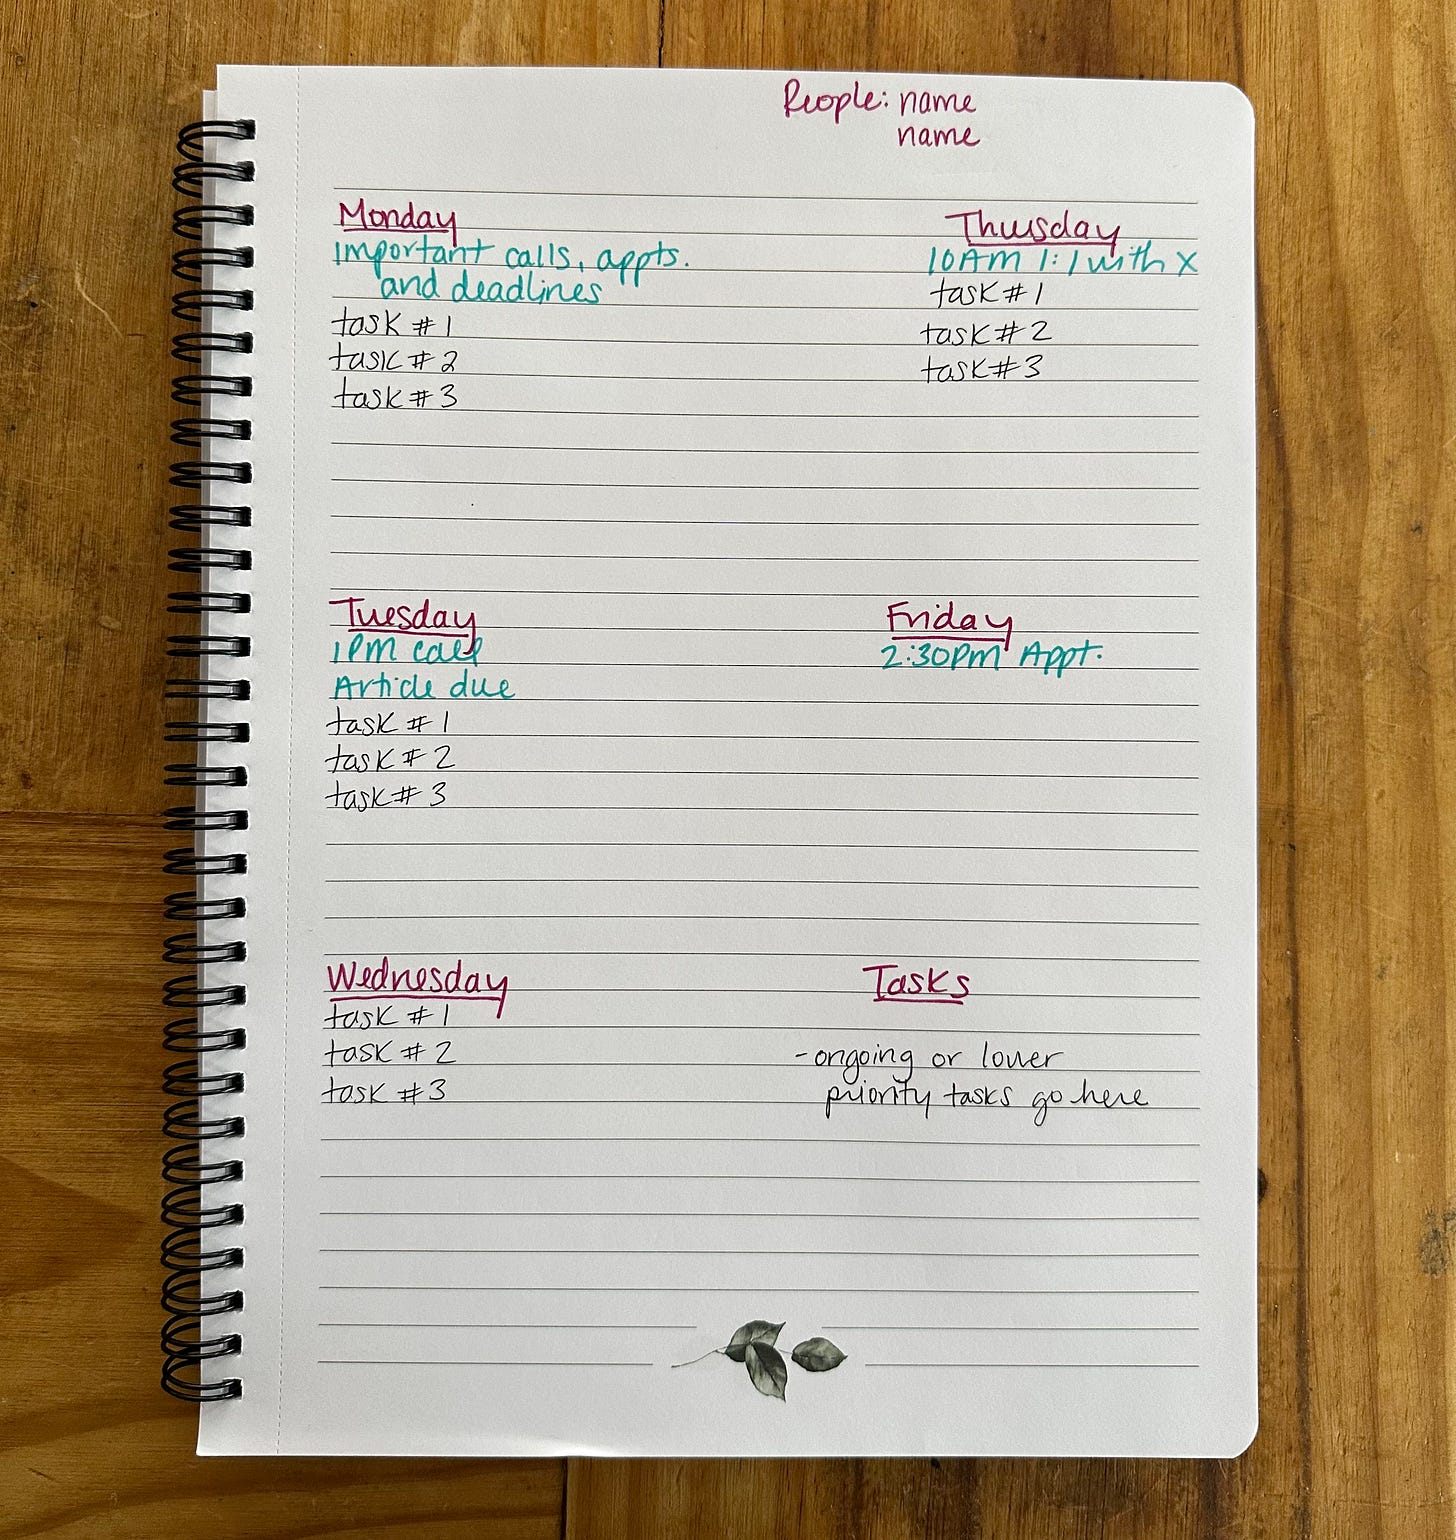 People: name
name
Monday
Important calls, appts.
and deadlines
task #1
task #2
task #3
Tuesday
1PM call
Article due
task #1
task #2
task #3
Wednesday
task #1
task #2
task #3
Thursday
10AM 1:1 with X
task #1
task #2
task #3
Friday
2:30PM Appt.
Tasks
- ongoing or lower
priority tasks go here